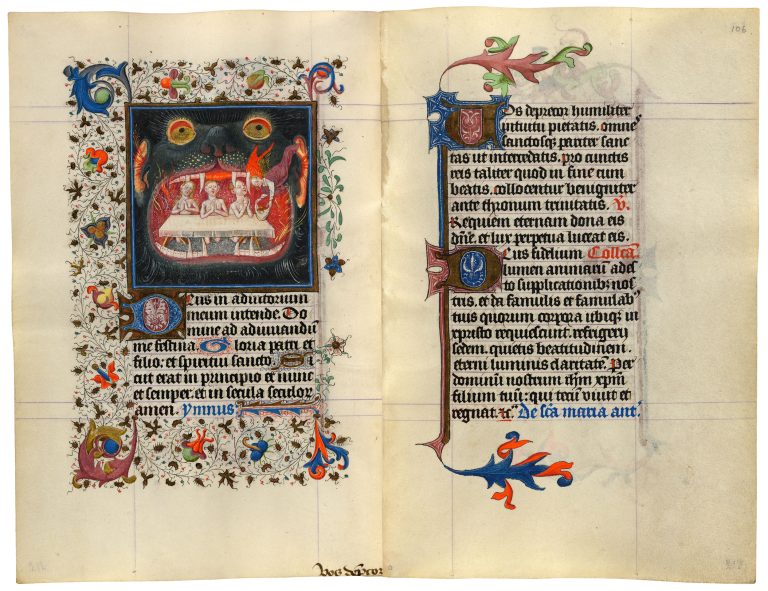 Deus in adiutorium
meum intende. Do
mine ad adiuuandū
me festina. Gloria patri et
filio: et spiritui sancto. Si
cut erat in principio et nunc
et semper: et in secula seculor
amen. ymnus
Vos deprcor
106
Vos deprecor humiliter
intuitu pietatis. omnes
sanctosq; pariter sanc
tas ut intercedatis. pro cunctis
reis taliter quod in fine cum
beatis. collocentur benigniter
ante thronum trinitatis. V.
Requiem eternam dona eis
dñe. et lux perpetua luceat eis.
Deus fidelium Collcā
lumen animarū ades
to supplicationib; nos
tris. et da famulis et famulab
tuis quorum corpora ubiq; in
xpristo requiescunt. refrigerij
sedem. quietis beatitudinem.
eterni luminis claritate. Per
dominū nostrum ihm xpm
filium tuū: qui tecū viuit et
regnat. &c. De scā maria ant.